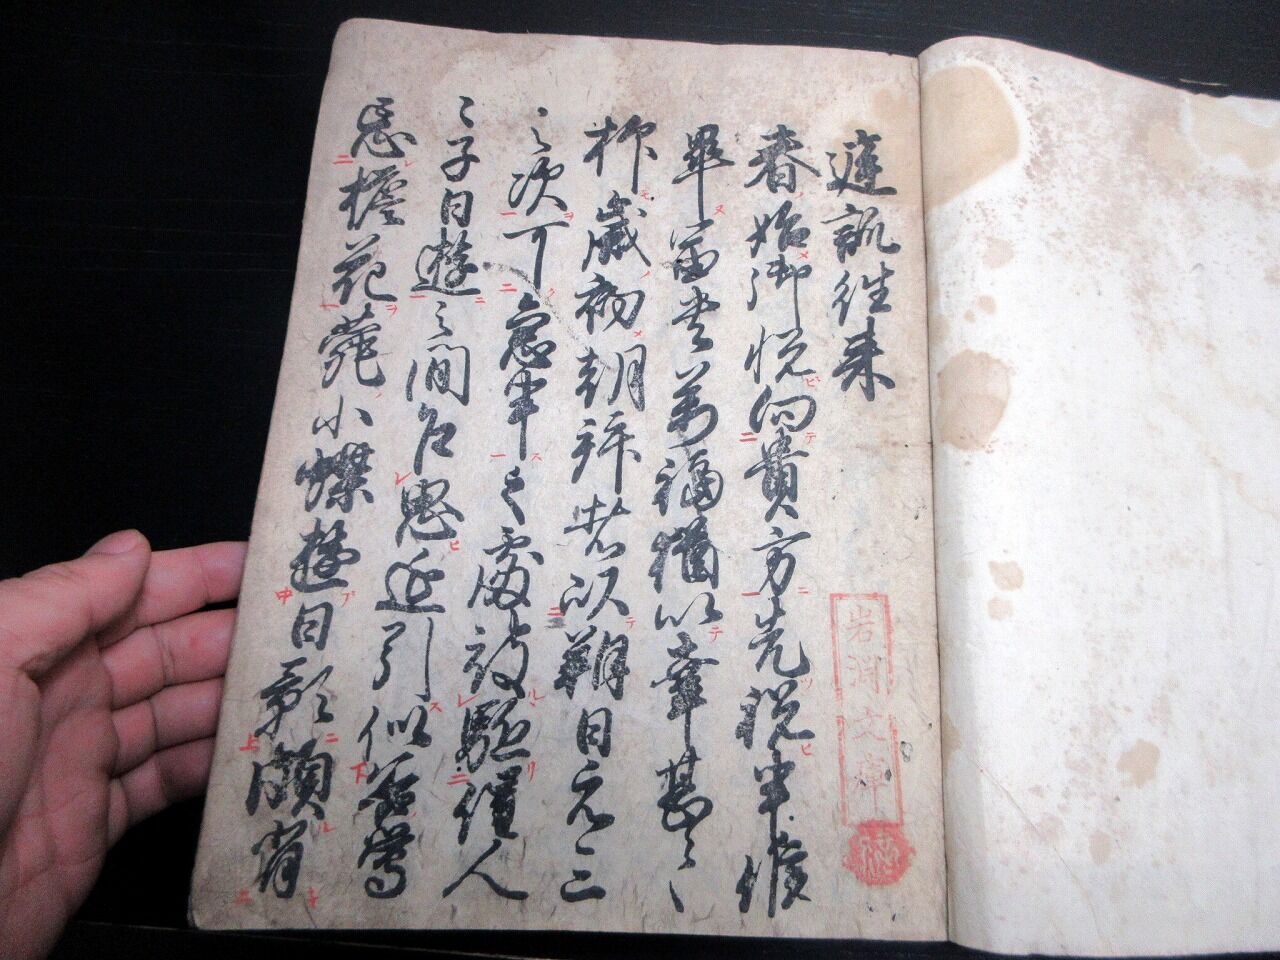 庭訓往来
春始御悦向貴方先祝申候
畢富貴萬福猶以幸甚〻〻
抑歳初朝拝者以朔日元三
之次可急申之處被駈催人
〻子日遊之間乍思延引似谷鶯
忘檐花苑小蝶遊日影頗背
岩淵文庫